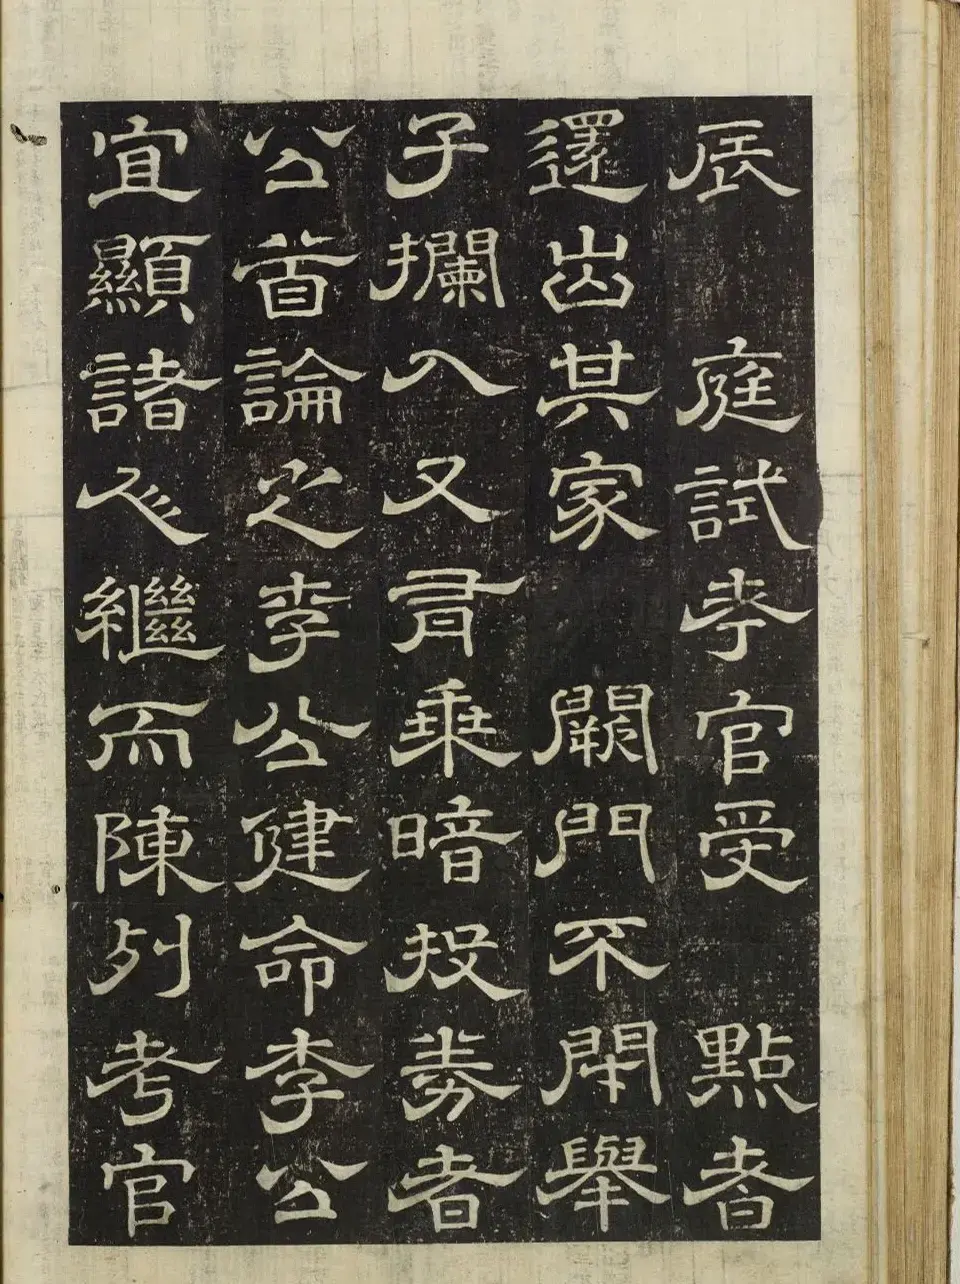 辰　庭試考官受　點者
還出其家　闕門不閉舉
子攔入又有乘暗投券者
公首論之李公建命李公
宜顯諸繼而陳列考官